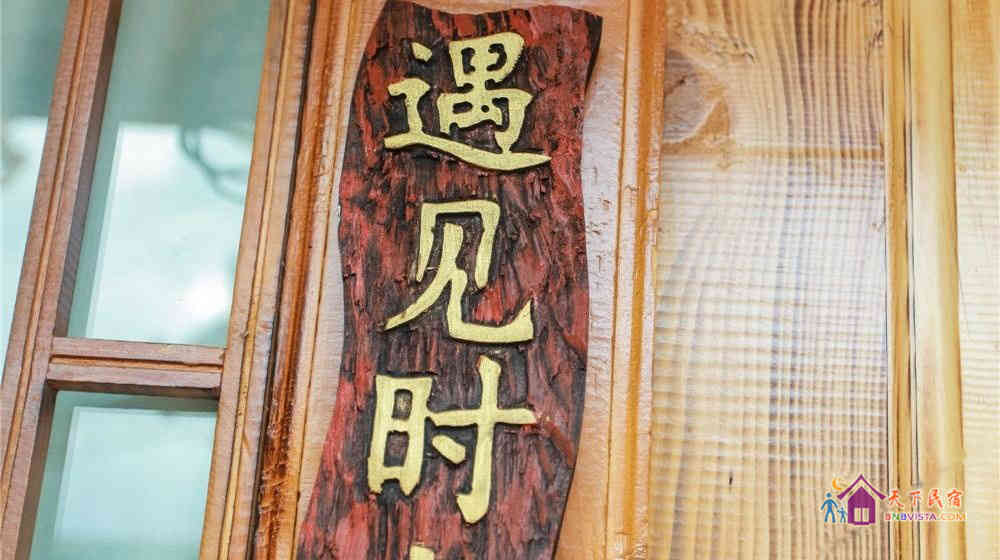 遇见时
天下民宿
BNBVISTA.COM